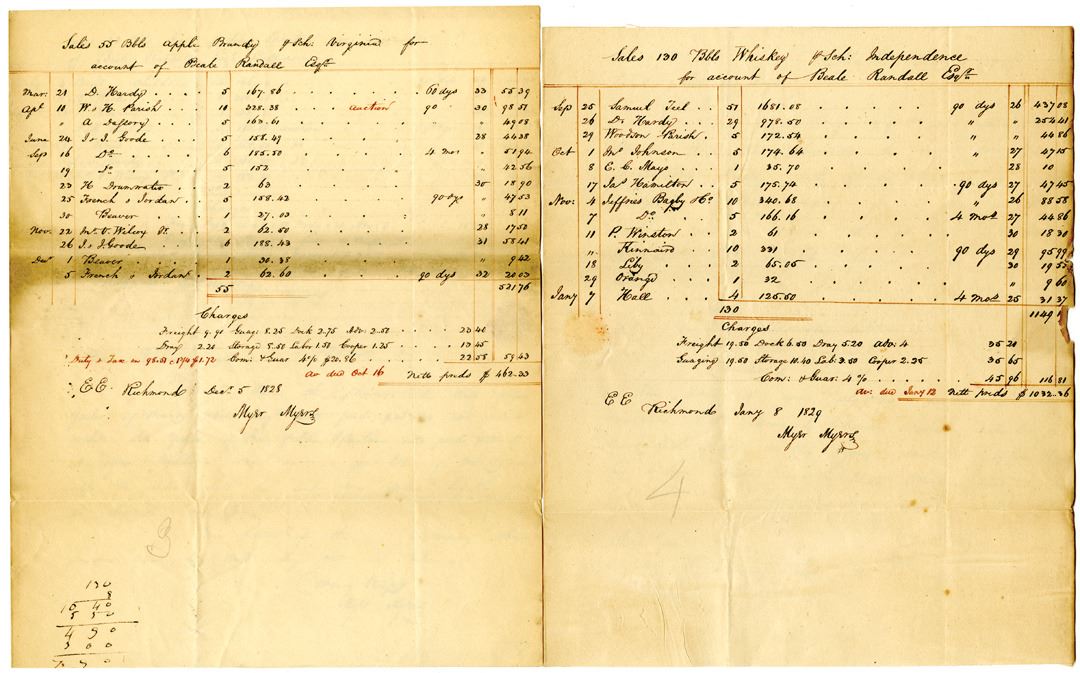 Sales 55 Bbls Apple Brandy Sch: Virginia for
account of Beale Randall Esqr
Mar: 21 D. Hardy 5 167.86 60 dys 33 55 39
Apl 10 W & H. Parish 10 328.38 auction 90 30 98 51
" A. 5 163.61 " 49 08
June 24 J & J. Goode 5 158.49 28 44 38
Sep 16 Do 6 185.50 4 mos " 51 94
19 Do 5 152 " 42 56
23 H 2 63 30 18 90
25 French & Jordan 5 158.42 90 dys " 47 53
30 Beaver 1 27.03 " 8 11
Nov. 22 2 62.50 28 17 50
26 J & J. Goode 6 188.43 31 58 41
Decr 1 Beaver 1 30.38 " 9 42
5 French & Jordan 2 62.60 90 dys 32 20 03
55 521 76
Charges
Freight 9.90 Guag: 8.25 Dock 2.75 Adv: 2.50 23 40
Dray 2.20 Storage 8.50 Labr 1.50 Cooper 1.25 13 45
Duty & Tax on 98.51 $1.72 Com: & Guar 4% $20.86 22 58 59 43
Av due Oct 16 Nett prods $ 462.33
E E. Richmond Decr 5 1828
Myer Myers
3
130
8
10 40
5 5 0
4 9 0
3 0 0
7 9 0
Sales 130 Bbls Whiskey Sch: Independence
for account of Beale Randall Esqr
Sep 25 Samuel Teel 51 1681.08 90 dys 26 437 08
26 D. Hardy 29 978.50 " " 254 41
29 Woodson Parish 5 172.54 " " 44 86
Oct 1 Jno Johnson 5 174.64 " 27 47 15
8 E. C. Mayo 1 35.70 28 10
17 Jas Hamilton 5 175.74 90 dys 27 47 45
Nov: 4 Jeffries Bagby & Co 10 340.68 " 26 88 58
7 Do 5 166.16 4 mos 27 44 86
11 P. Winston 2 61 30 18 30
" Kinnaird 10 331 90 dys 29 95 99
18 Liby 2 65.05 30 19 5
29 Orange 1 32 " 9 60
Jany 7 Hall 4 125.50 4 mos 25 31 37
130 1149 1
Charges
Freight 19.50 Dock 6.50 Dray 5.20 Adv: 4 35 20
Guaging 19.50 Storage 10.40 Lab: 3.50 Cooper 2.25 35 65
Com: & Guar: 4% 45 96 116 81
Av: due Jany 12 Nett prods $ 1032.36
E E Richmond Jany 8 1829
Myer Myers
4